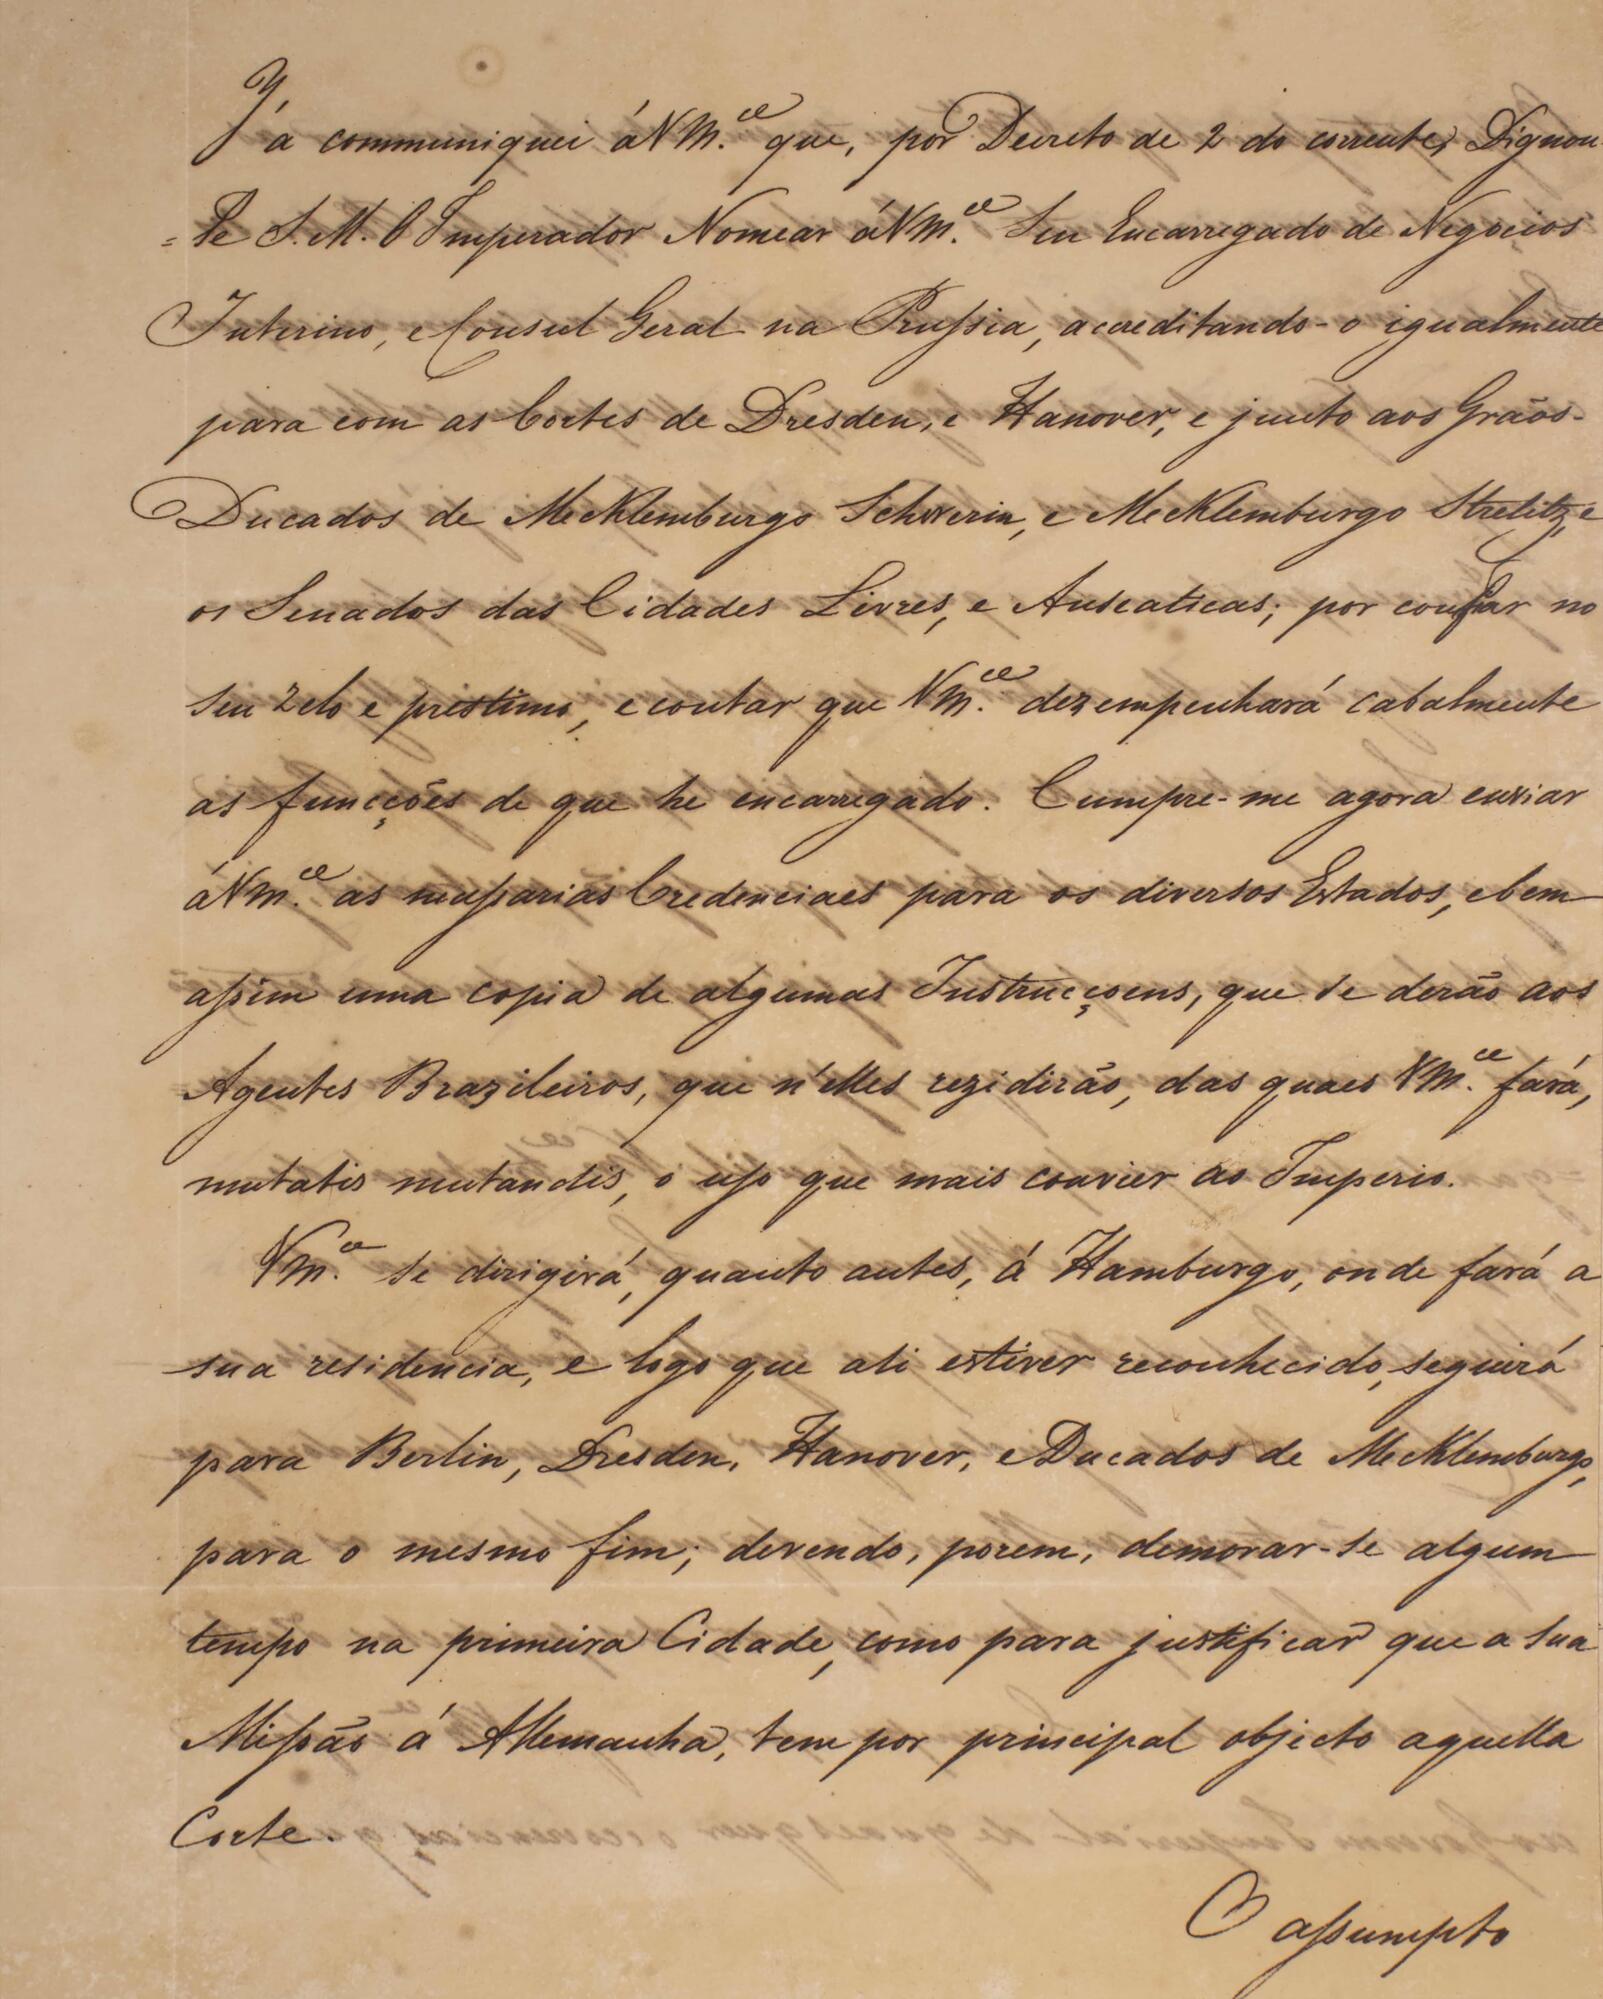 Ja communiquei á Vm.ce que, por Decreto de 2 do corrente, Dignou
=Se S. M. O Imperador Nomear á Vm.ce Seu Encarregado de Negocios
Interino, e Consul Geral na Prussia, acreditando-o igualmente
para com as Cortes de Dresden, e Hanover, e junto aos Grãos-
Ducados de Mecklemburgo Schwerin, e Mecklemburgo Strelitz, e
os Senados das Cidades Livres, e Anseaticas; por confiar no
seu zelo e prestimo, e contar que Vm.ce dezempenhará cabalmente
as funcções de que he encarregado. Cumpre-me agora enviar
á Vm.ce as nessarias Credenciaes para os diversos Estados, e bem
assim uma copia de algumas Instrucçoens, que se derão aos
Agentes Brazileiros, que n'elles rezidirão, das quaes Vm.ce fará,
mutatis mutandis, o uso que mais convier ao Imperio.
Vm.ce se dirigirá, quanto antes, á Hamburgo, onde fará a
sua residencia, e logo que ali estiver reconhecido, seguirá
para Berlin, Dresden, Hanover, e Ducados de Mecklemburgo,
para o mesmo fim; devendo, porem, demorar-se algum
tempo na primeira Cidade, como para justificar que a sua
Missão á Allemanha, tem por principal objecto aquella
Corte.
O assumpto